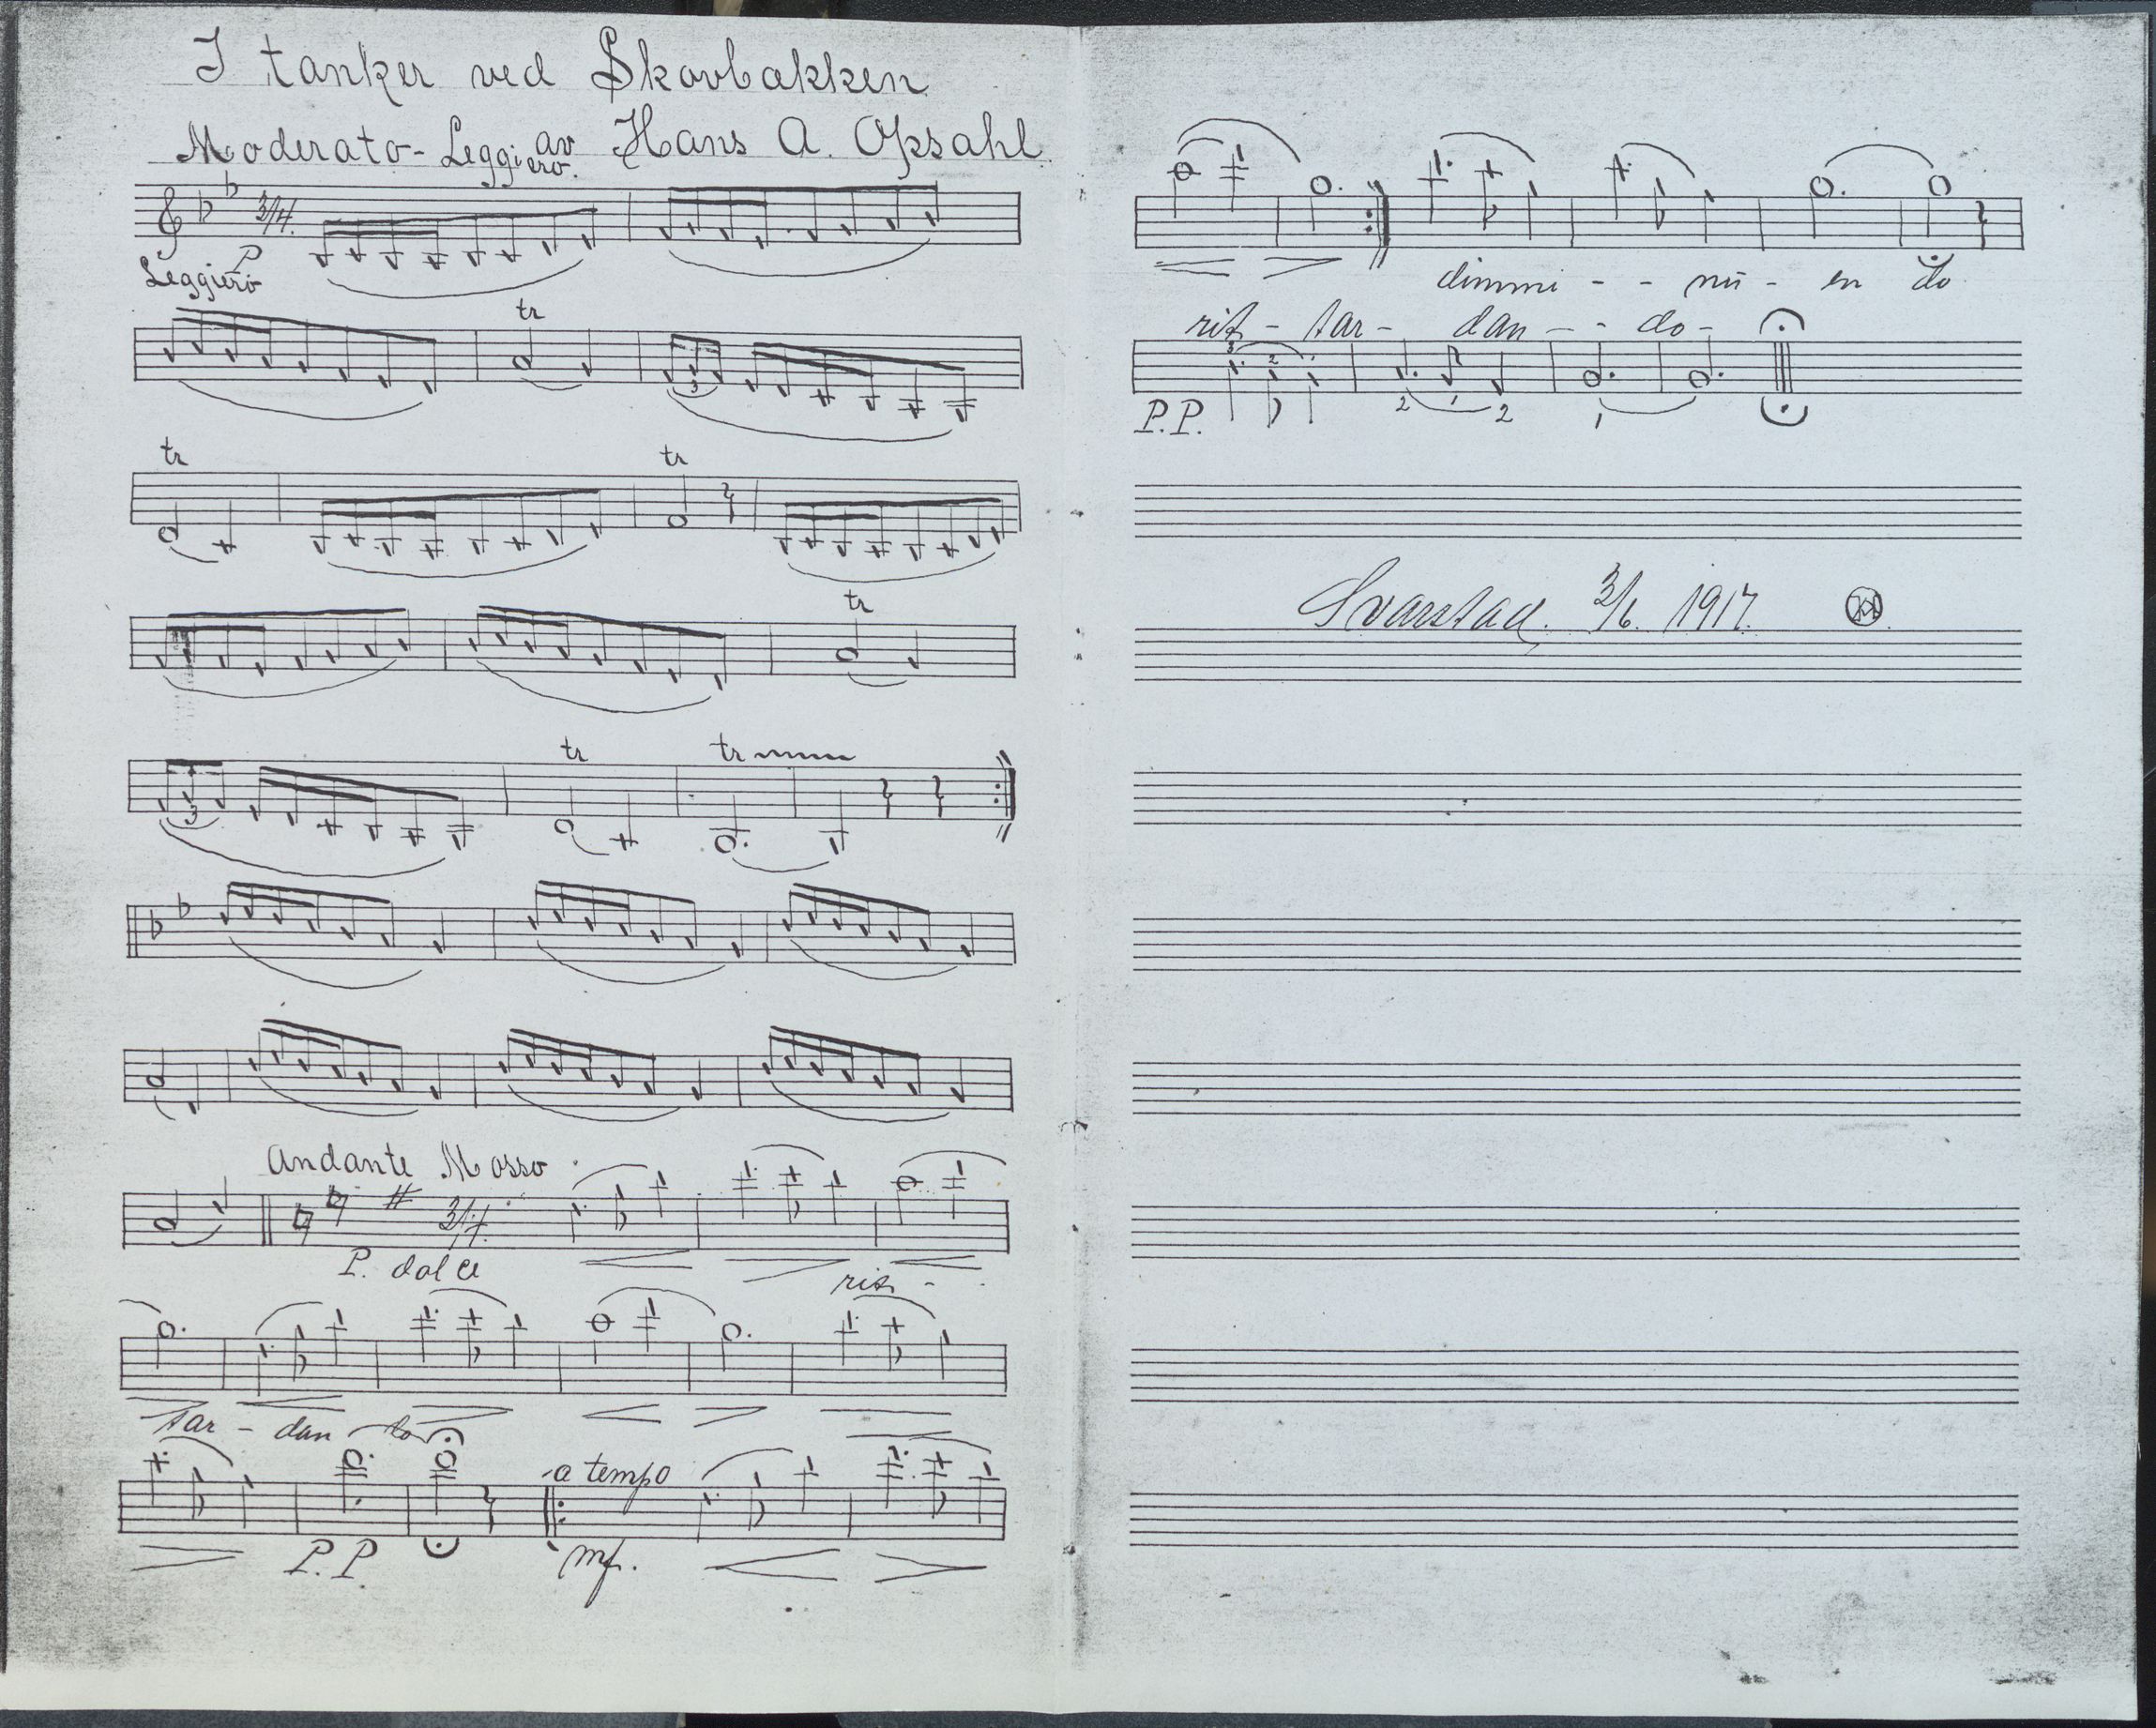 I tanker ved Skovbakken
av Hans A. Opsahl
Moderato-Leggiero.
3/4.
P
Leggiero
tr
3
tr tr
tr
tr tr
3
Andante Mosso
3/4.
P. dolce
rit -
tar - dan - do
a tempo
P.P. mf.
dimmi - - nu - en do
rit - tar - dan - - do -
3 2
P.P. 2 1 2 1
Svarstad. 3/6. 1917.